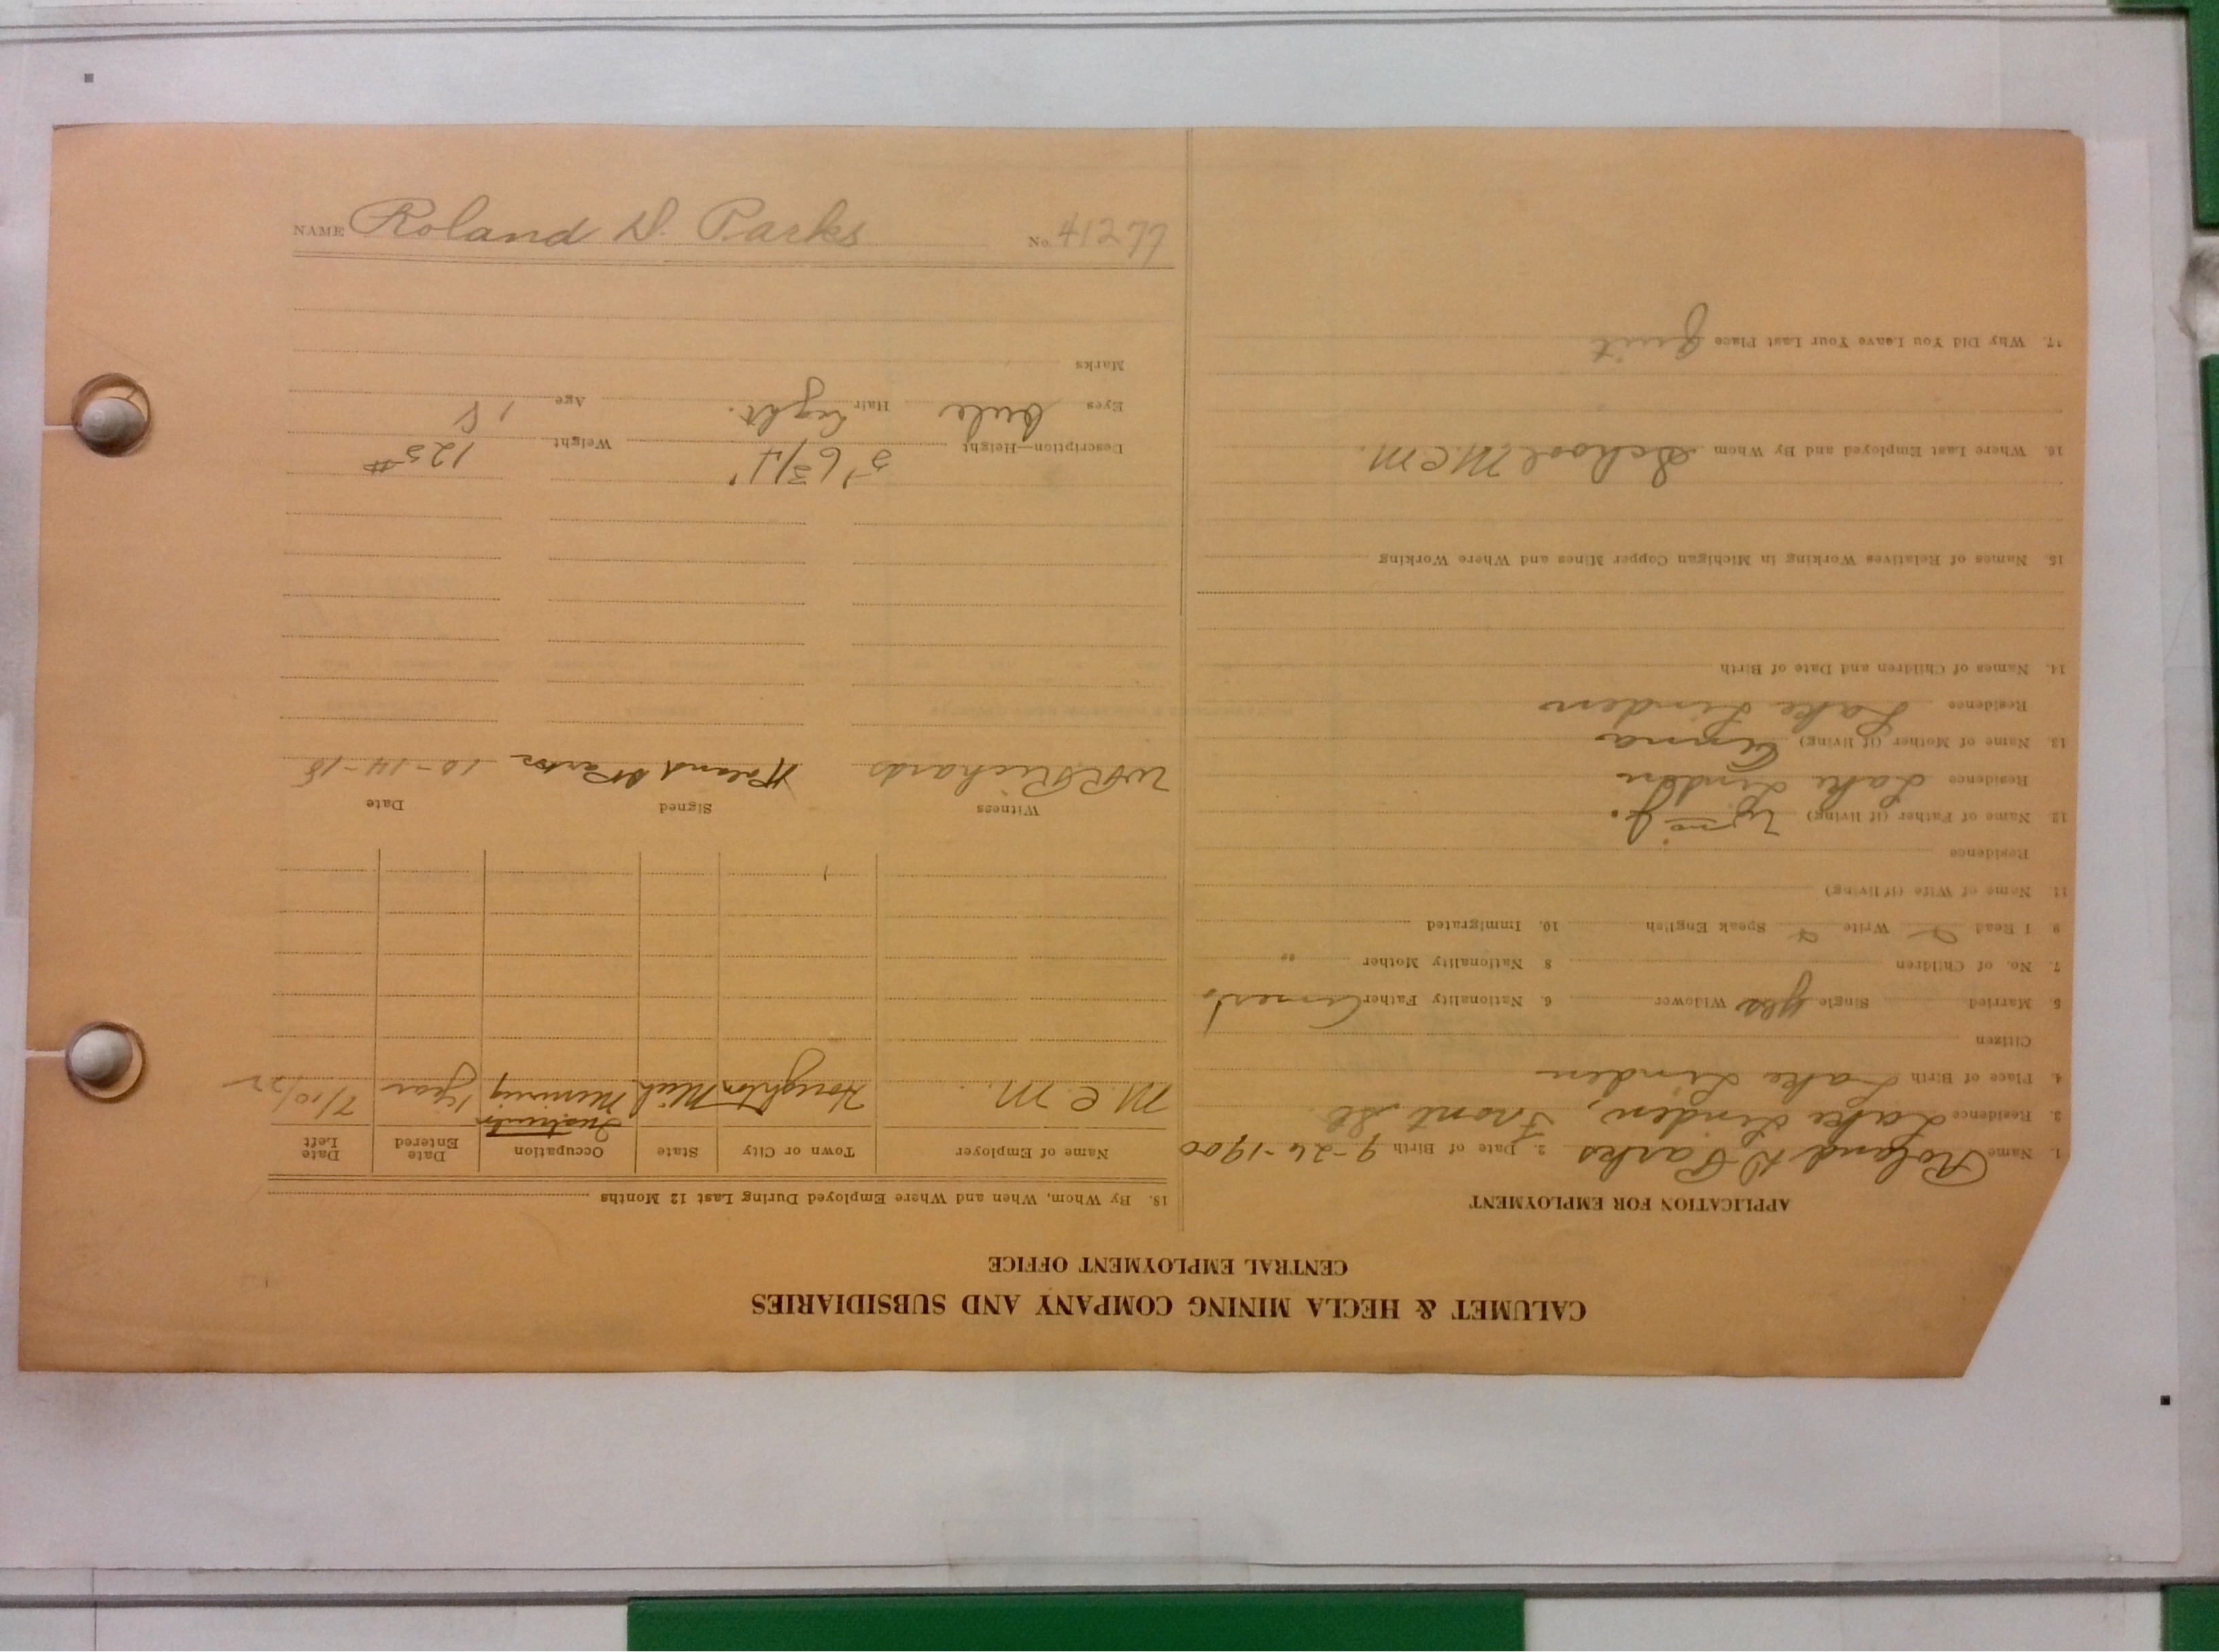 CALUMET & HECLA MINING COMPANY AND SUBSIDIARIES
CENTRAL EMPLOYMENT OFFICE
APPLICATION FOR EMPLOYMENT
1. Name Roland D Parks 2. Date of Birth 9-26-1900
3. Residence Lake Linden, Front St.
4. Place of Birth Lake Linden
Citizen
5 Married Single yes Widower 6. Nationality Father Cornish
7. No. of Children 8 Nationality Mother "
9 I Read Write Speak English 10. Immigrated
11. Name of Wife (if living)
Residence
12. Name of Father (if living) Wm J.
Residence Lake Linden
13. Name of Mother (if living) Anna
Residence Lake Linden
14. Names of Children and Date of Birth
15. Names of Relatives Working in Michigan Copper Mines and Where Working
16. Where Last Employed and By Whom School M.C.M.
17. Why Did You Leave Your Last Place Quit
18. By Whom, When and Where Employed During Last 12 Months
Name of Employer Town or City State Occupation Date Entered Date Left
M.C.M. Houghton Mich Instructor Mining 1 year 7/10/22
Witness Signed Date
W R Richards Roland D Parks 10-14-18
Description—Height 5' 6 3/4" Weight 125 #
Eyes blue Hair Light. Age 18
Marks
NAME Roland D. Parks No. 41277